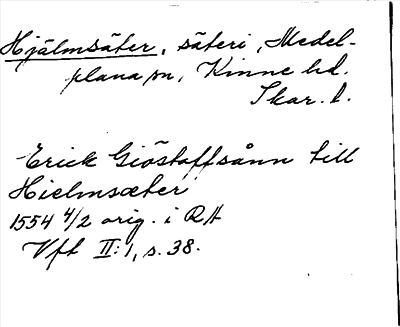 Hjälmsäter, säteri, Medel-
plana sn, Kinne hd.
Skar. l.
Erick Giöstaffsånn till
Hielmsæter
1554 4/2 orig. i RA
Vft II:1, s. 38.